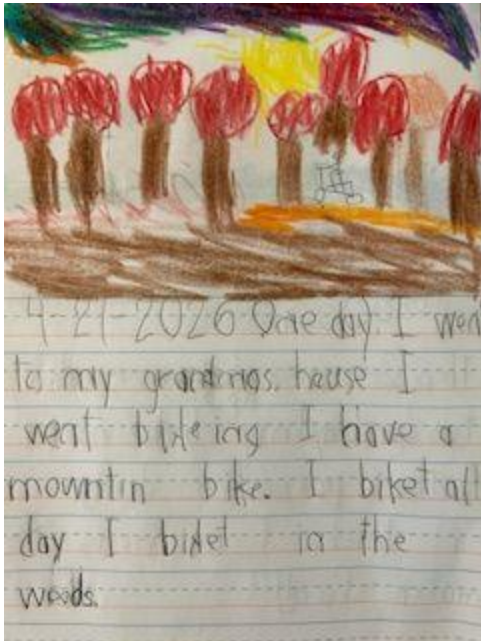 4-21-2026 One day. I wen
to my grandmas. house I
went bikeing I have a
mowntin bike. I biket all
day I biket in the
woods.